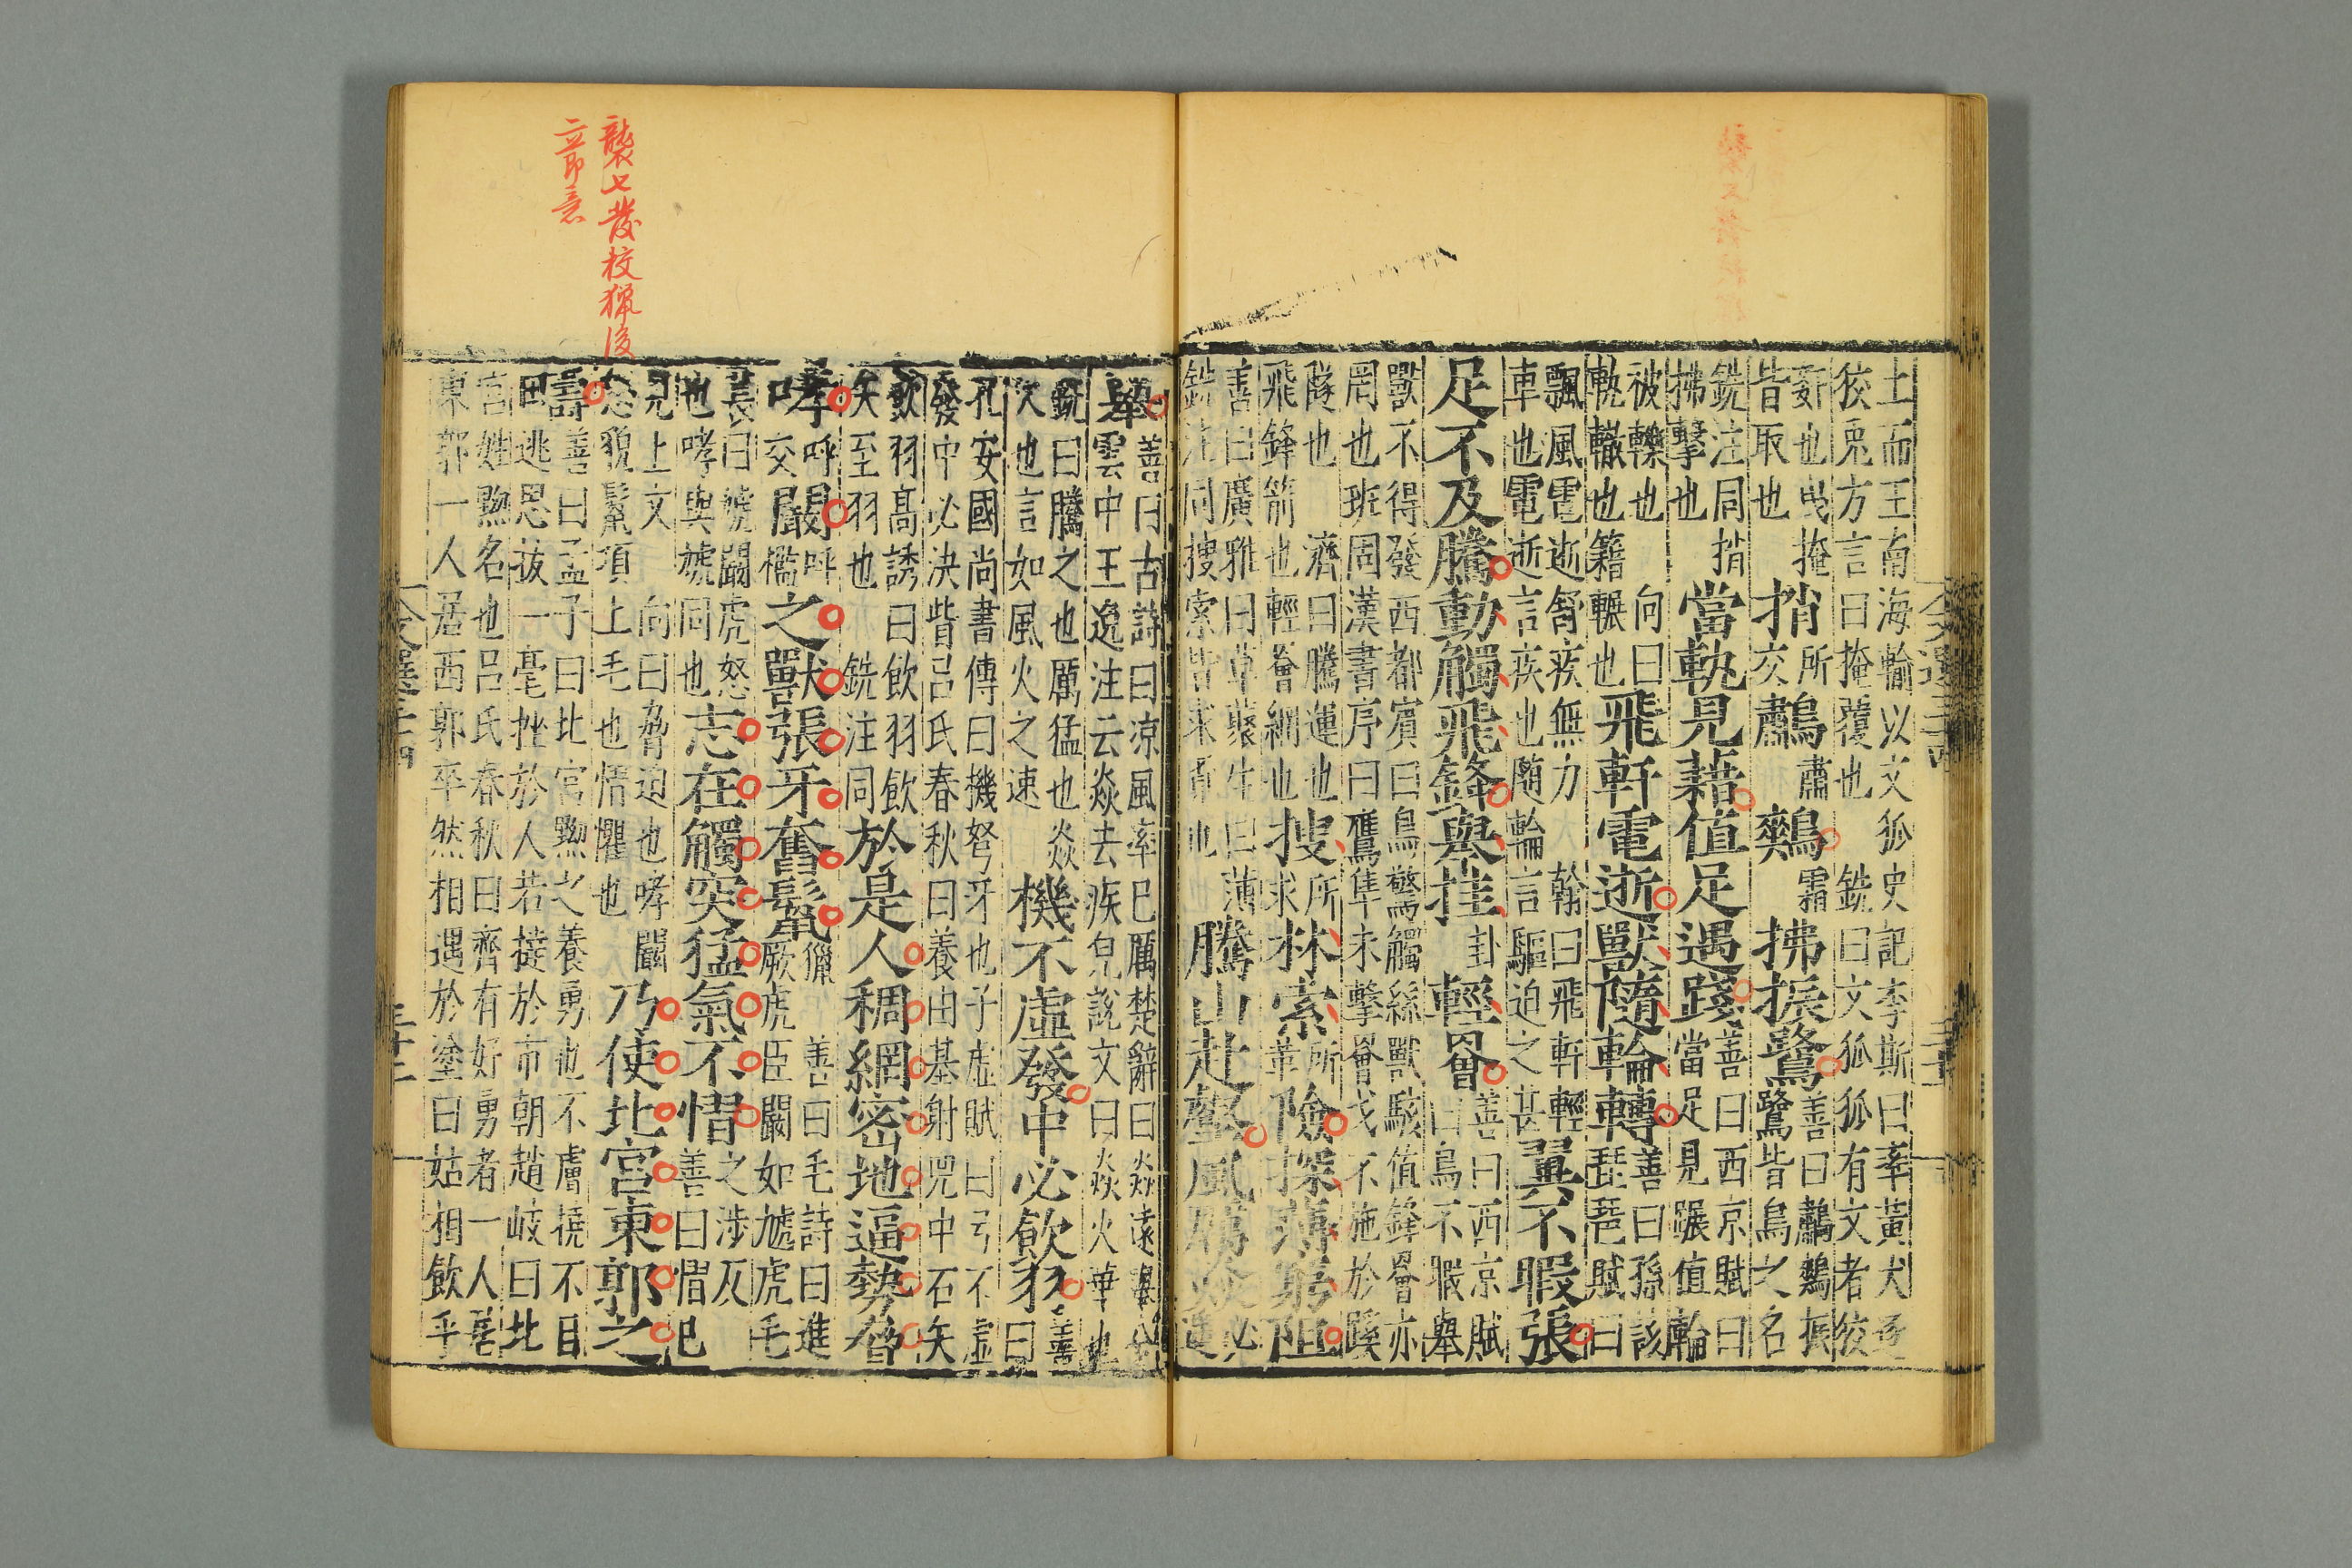 土而王南海輸以文狐史記李斯曰牽黃犬逐
狡兔方言曰掩覆也銑曰文狐狐有文者狡
姧也曳掩皆取也捎所交鷫肅鷞霜拂振鷺善曰鷫鷞振鷺皆鳥之名
銑注同捎拂擊也當軌見藉值足遇踐善曰西京賦曰當足見蹍值輪
被轢也向曰軌轍也籍輾也飛軒電逝獸隨輪轉善曰孫該琵琶賦曰
飄風電逝舒疾無力翰曰飛軒輕車也電逝言疾也隨輪言驅迫之甚翼不暇張
足不及騰動觸飛鋒舉挂卦輕罾善曰西京賦曰鳥不暇舉
獸不得發西都賓曰鳥驚觸絲獸駭值鋒罾亦
罔也班固漢書序曰鷹隼未擊罾弋不施於蹊
隧也濟曰騰運也飛鋒箭也輕罾網也搜所求林索所革險探薄窮阻
善曰廣雅曰草藂生曰薄銑注同搜索皆求覔也騰山赴壑風厲焱必遥
舉善曰古詩曰凉風率已厲楚辭曰焱遠舉兮雲中王逸注云焱去疾皃說文曰焱火華也
銑曰騰之也厲猛也焱火也言如風火之速機不虛發中必飲羽善曰
孔安國尚書傳曰機弩牙也子虛賦曰弓不虛
發中必決眥呂氏春秋曰養由基射兕中石矢
飲羽高誘曰飲羽飲矢至羽也銑注同於是人稠網密地逼勢脅
哮呼交闞呼檻之獸張牙奮鬣獵善曰毛詩曰進厥虎臣闞如虓虎毛
萇曰虓闞虎怒也哮與虓同也志在觸突猛氣不慴之涉反善曰慴已
見上文向曰脅迫也哮闞忿貌鬣項上毛也悟懼也乃使北宮東郭之
疇善曰孟子曰北宮黝之養勇也不膚撓不目逃思拔一毫挫於人若撻於市朝趙岐曰北
宮姓黝名也呂氏春秋曰齊有好勇者一人居
東郭一人居西郭卒然相遇於塗曰姑相飲乎
襲七發校獵後